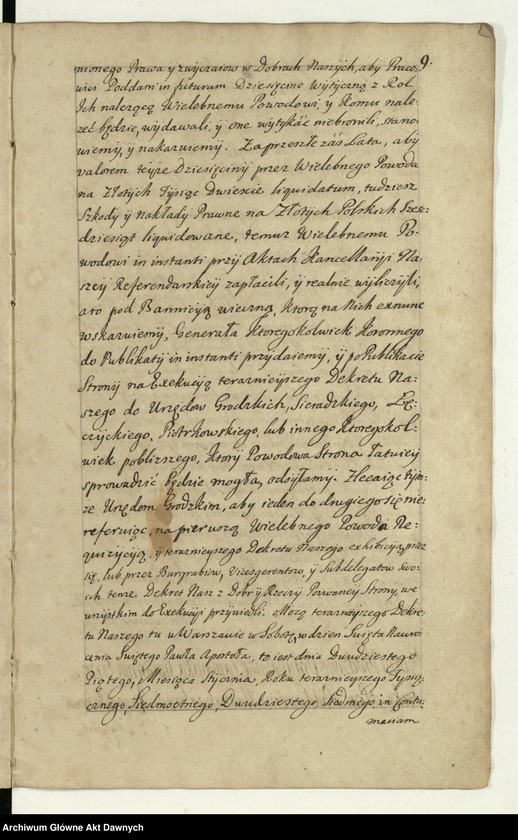 9.
nionego Prawa y zwyczaiow w Dobrach Naszych, aby Praco:
wici Poddani in futurum Dziesięcinę Wytyczną z Rol
Ich należącą Wielebnemu Powodowi, y Komu nale:
żeć będzie, wydawali, y one wytykać niebronili, stano:
wiemy, y nakazuiemy. Zaprzeszłe zaś Lata, aby
valorem teyże Dziesięciny przez Wielebnego Powoda
na Złotych Tysiąc Dwieście liquidatum, tudziesz
Szkody y Nakłady Prawne na Złotych Polskich Sześć:
dziesiąt liquidowane, temuż Wielebnemu Po:
wodowi in instanti przy Aktach Kancellaryi Na:
szey Referendarskiey zapłacili, y realnie wyliczyli,
a to pod Bannicyą wieczną, Ktorą na Nich exnunc
wskazuiemy, Generała Ktoregokolwiek Koronnego
do Publikaty in instanti przydaiemy, y po Publikacie
Strony na Exekucyą teraznieyszego Dekretu Na:
szego do Urzędow Grodzkich, Sieradzkiego, Łę:
czyckiego, Piotrkowskiego, lub innego Ktoregokol:
wiek pobliższego, Ktory Powodowa Strona łatwiey
sprowadzić będzie mogła, odsyłamy. Zlecaiąc tym:
że Urzędom Grodzkim, aby ieden do drugiego się nie
referuiąc, na pierwszą Wielebnego Powoda Re:
quizycyą, y teraznieyszego Dekretu Naszego exhibicyą, przez
się, lub przez Burgrabiow, Vicesgerentow, y Subdelegatow swo:
ich tenże Dekret Nasz z Dobr y Rzeczy Pozwaney Strony, we
wszystkim do Exekucyi przywiedli. Mocą teraznieyszego Dekre:
tu Naszego tu w Warszawie w Sobotę, w dzień Święta Nawro:
cenia Świętego Pawła Apostoła, to iest dnia Dwudziestego
Piątego, Miesiąca Stycznia, Roku teraznieyszego Tysią:
cznego, Siedmsetnego, Dwudziestego, Siodmego, in Contu:
maciam
Archiwum Główne Akt Dawnych